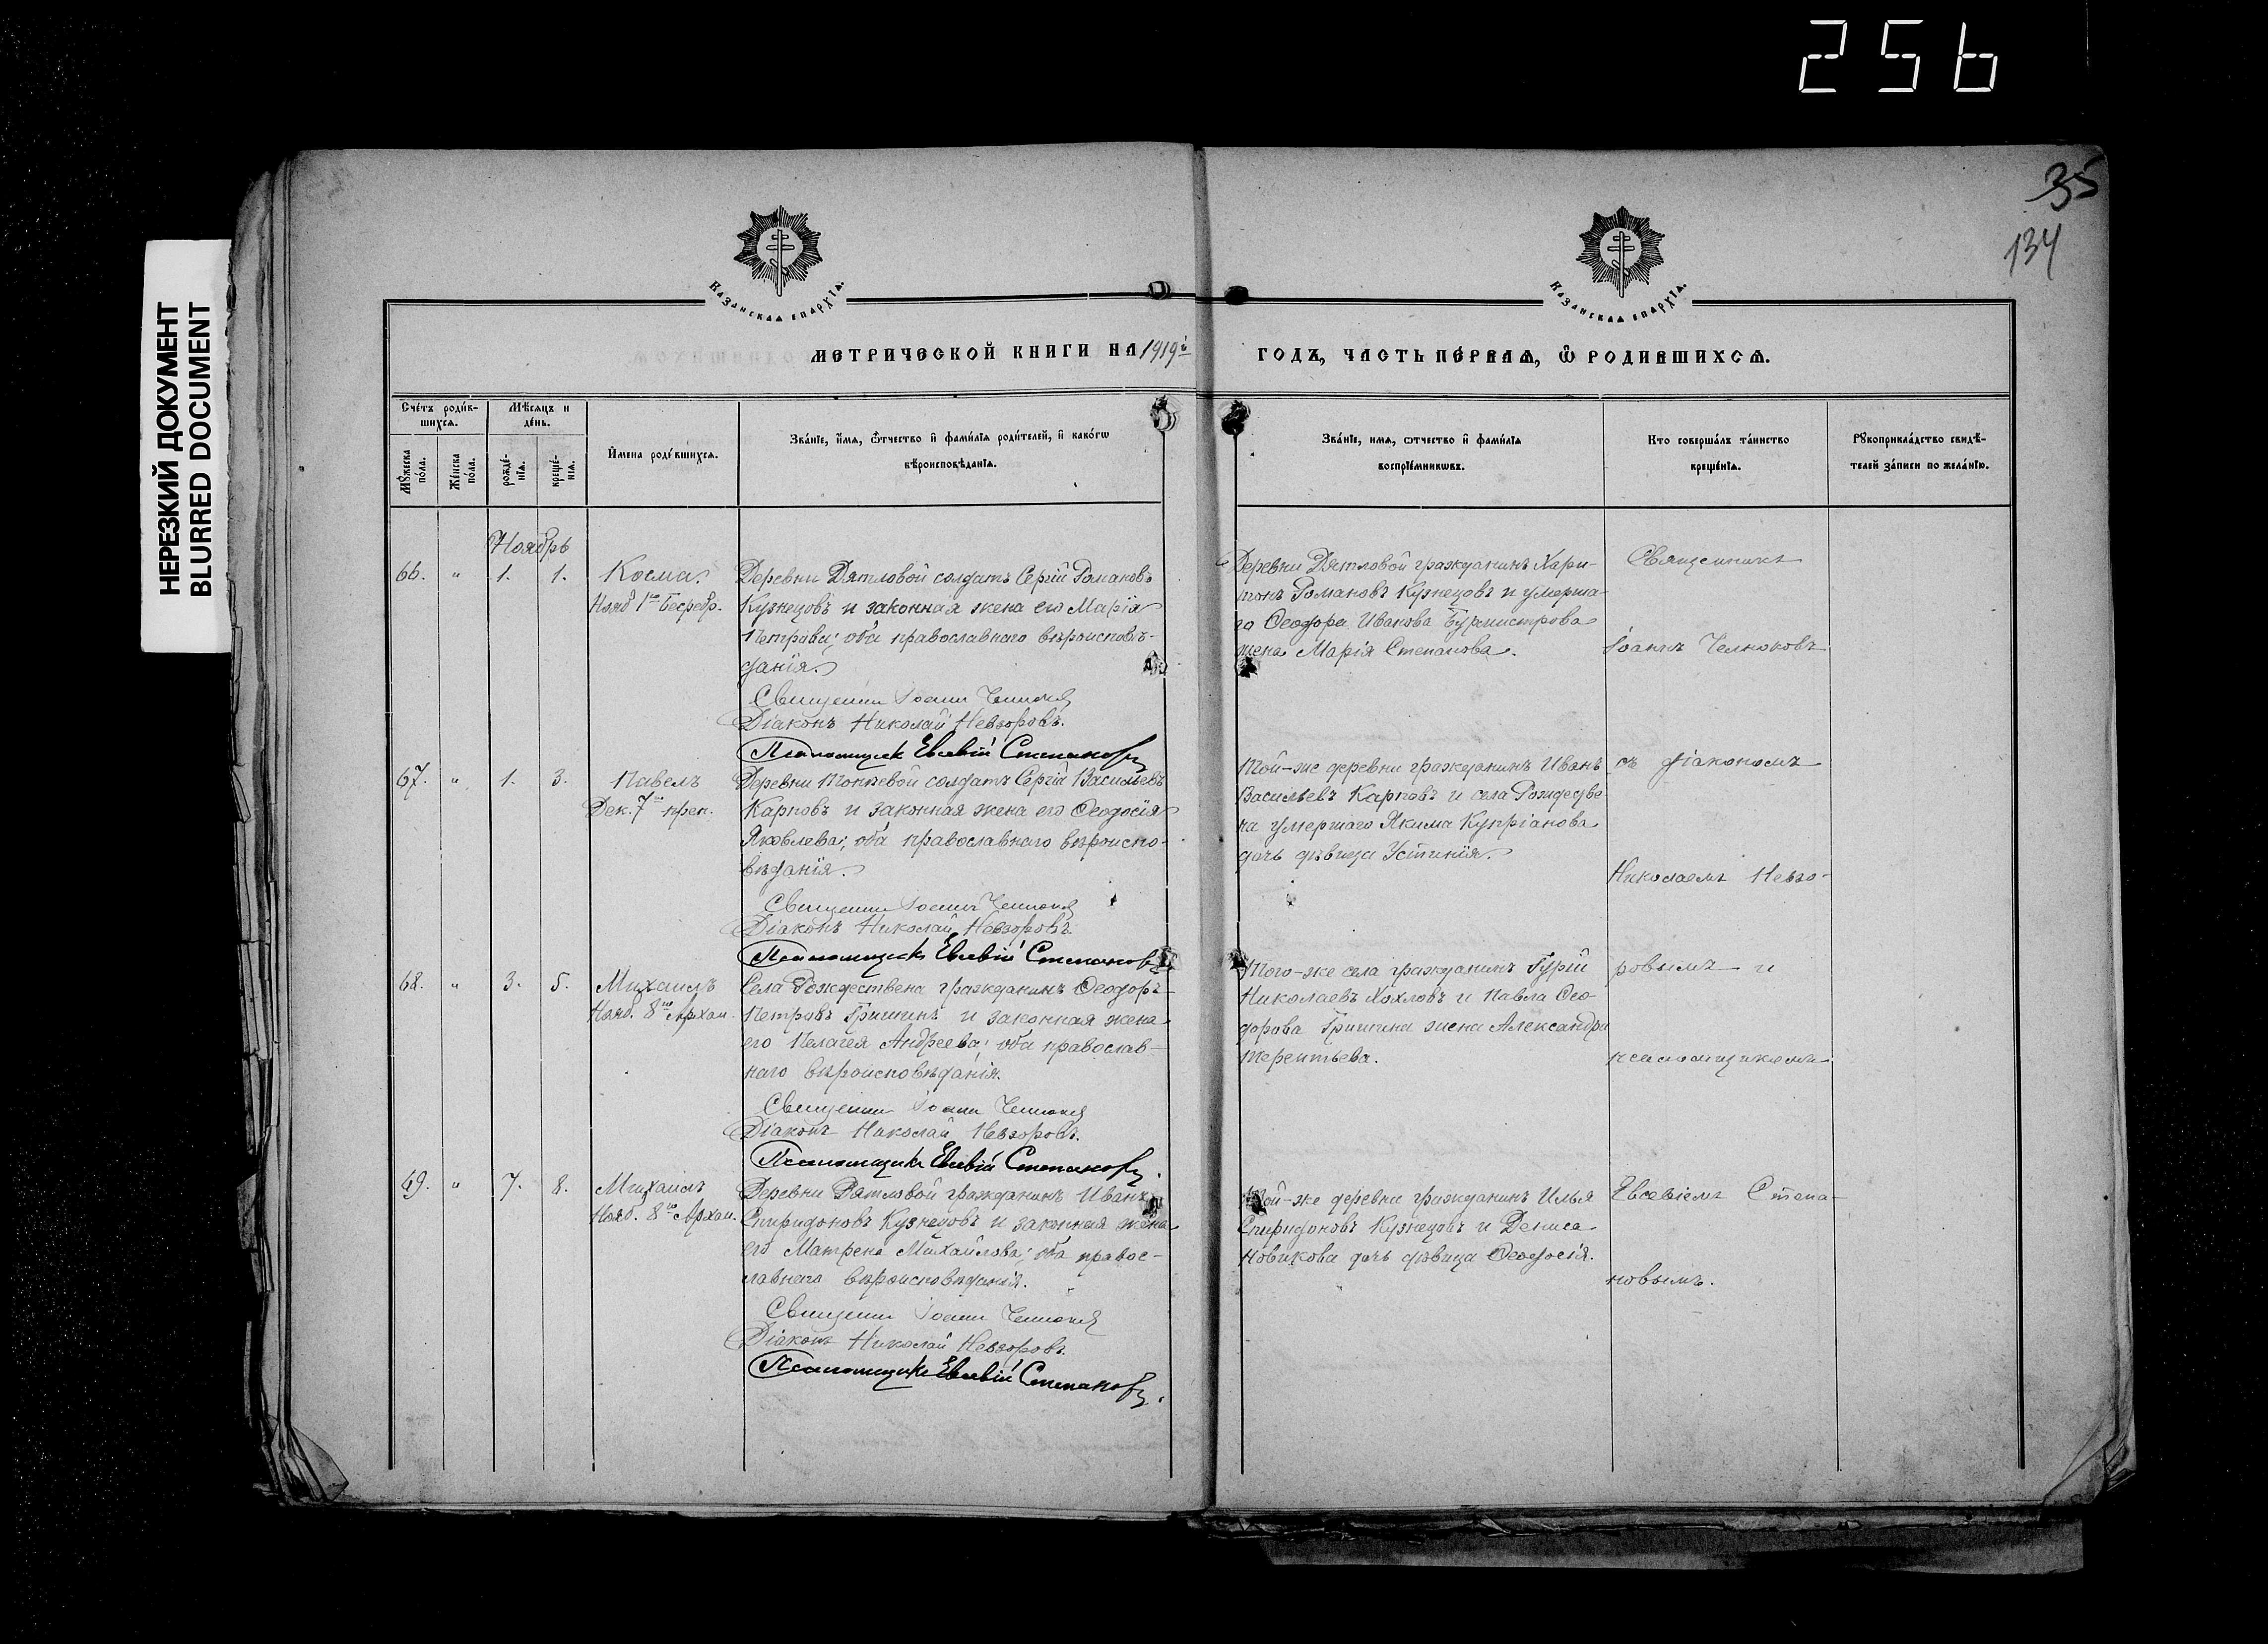 256
НЕРЕЗКИЙ ДОКУМЕНТ
BLURRED DOCUMENT
35
134
Казанская епархія.
Казанская епархія.
МЕТРИЧЕСКОЙ КНИГИ НА 1919й
ГОДЪ, ЧАСТЬ ПЕ́РВАѦ, Ѿ РОДИВШИХСѦ.
Сче́тъ роди́в-
шихсѧ.
Мѣ́сѧцъ и
де́нь.
Мꙋ́жеска
по́ла.
Же́нска
по́ла.
рожде́-
нїѧ.
креще́-
нїѧ.
И҆мена роди́вшихсѧ.
Зва́нїе, и҆́мѧ, ѻ҆́тчество и҆ фами́лїѧ роди́телей, и҆ како́гѡ
вѣроисповѣ́данїѧ.
Зва́нїе, имѧ, ѻтчество и҆ фами́лїѧ
воспрїе́мникѡвъ.
Кто соверша́лъ та́инство
креще́нїѧ.
Рꙋкоприкла́дство свидѣ́-
телей за́писи по жела́нїю.
Ноябрь
66. " 1. 1. Косма.
Нояб 1го Безсребр.
Деревни Дятловой солдатъ Сергій Романовъ
Кузнецовъ и законная жена его Марія
Петрова; оба православнаго вѣроисповѣ-
данія.
Священникъ Іоаннъ Челноковъ
Діаконъ Николай Невзоровъ.
Псаломщикъ Евсевій Степановъ
Деревни Дятловой гражданинъ Хари-
тонъ Романовъ Кузнецовъ и умерша-
го Ѳеодора Иванова Бурмистрова
жена Марія Степанова.
Священникъ
Іоаннъ Челноковъ
67. " 1. 3. Павелъ
Дек. 7го преп.
Деревни Тонѣевой солдатъ Сергій Васильевъ
Карповъ и законная жена его Ѳеодосія
Яковлева; оба православнаго вѣроиспо-
вѣданія.
Священникъ Іоаннъ Челноковъ
Діаконъ Николай Невзоровъ.
Псаломщикъ Евсевій Степановъ
Той-же деревни гражданинъ Иванъ
Васильевъ Карповъ и села Рождестве-
на умершаго Якима Купріанова
дочь дѣвица Устинія.
съ діакономъ
Николаемъ Невзо-
68. " 3. 5. Михаилъ
Нояб. 8го Архан.
Села Рождествена гражданинъ Ѳеодоръ
Петровъ Гришинъ и законная жена
его Пелагея Андреева; оба православ-
наго вѣроисповѣданія.
Священникъ Іоаннъ Челноковъ
Діаконъ Николай Невзоровъ.
Псаломщикъ Евсевій Степановъ.
Того-же села гражданинъ Гурій
Николаевъ Хохловъ и Павла Ѳео-
дорова Гришина жена Александра
Терентьева.
ровымъ и
псаломщикомъ
69. " 7. 8. Михаилъ
Нояб. 8го Архан.
Деревни Дятловой гражданинъ Иванъ
Спиридоновъ Кузнецовъ и законная жена
его Матрена Михайлова; оба правос-
лавнаго вѣроисповѣданія.
Священникъ Іоаннъ Челноковъ
Діаконъ Николай Невзоровъ.
Псаломщикъ Евсевій Степановъ.
Той-же деревни гражданинъ Илья
Спиридоновъ Кузнецовъ и Дениса
Новикова дочь дѣвица Ѳеодосія.
Евсевіемъ Степа-
новымъ.